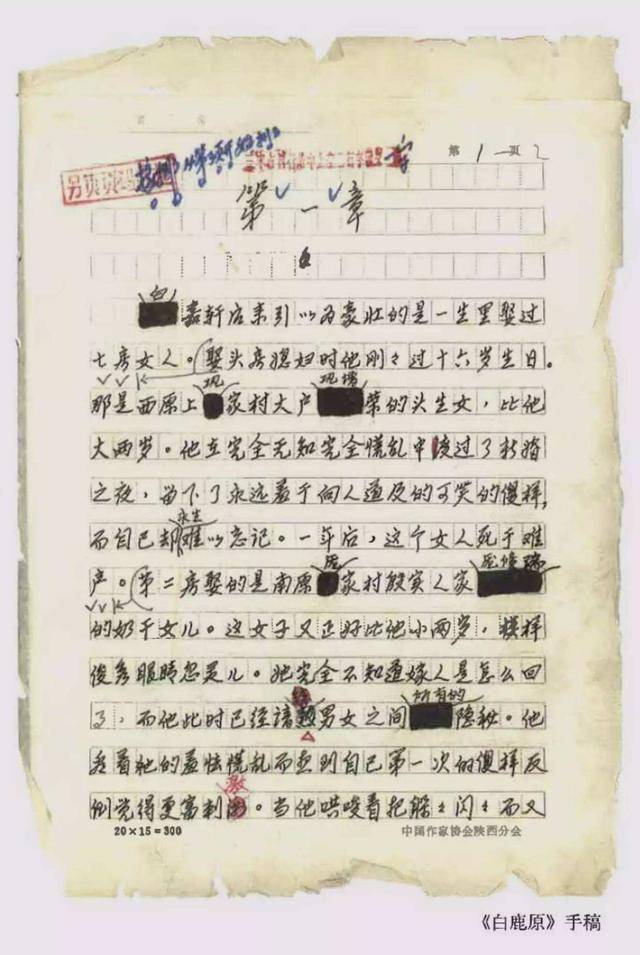 第1一页2
另页
第一章
白
嘉轩后来引以为豪壮的是一生里娶过
七房女人。娶头房媳妇时他刚々过十六岁生日。
巩 巩增
那是西原上家村大户荣的头生女,比他
大两岁。他在完全无知完全慌乱中度过了新婚
之夜,留下了永远羞于向人道及的可笑的傻样,
永生
而自己却难以忘记。一年后,这个女人死于难
庞 庞修瑞
产。第二房娶的是南原家村殷实人家
的奶干女儿。这女子又正好比他小两岁,模样
俊秀眼睛忽灵儿。她完全不知道嫁人是怎么回
所有的
事,而他此时已经谙男女之间隐秘。他
看着她的羞怯慌乱而想到自己第一次的傻样反
激
倒觉得更富刺。当他哄唆着把躲々闪々而又
20×15=300
中国作家协会陕西分会
《白鹿原》手稿